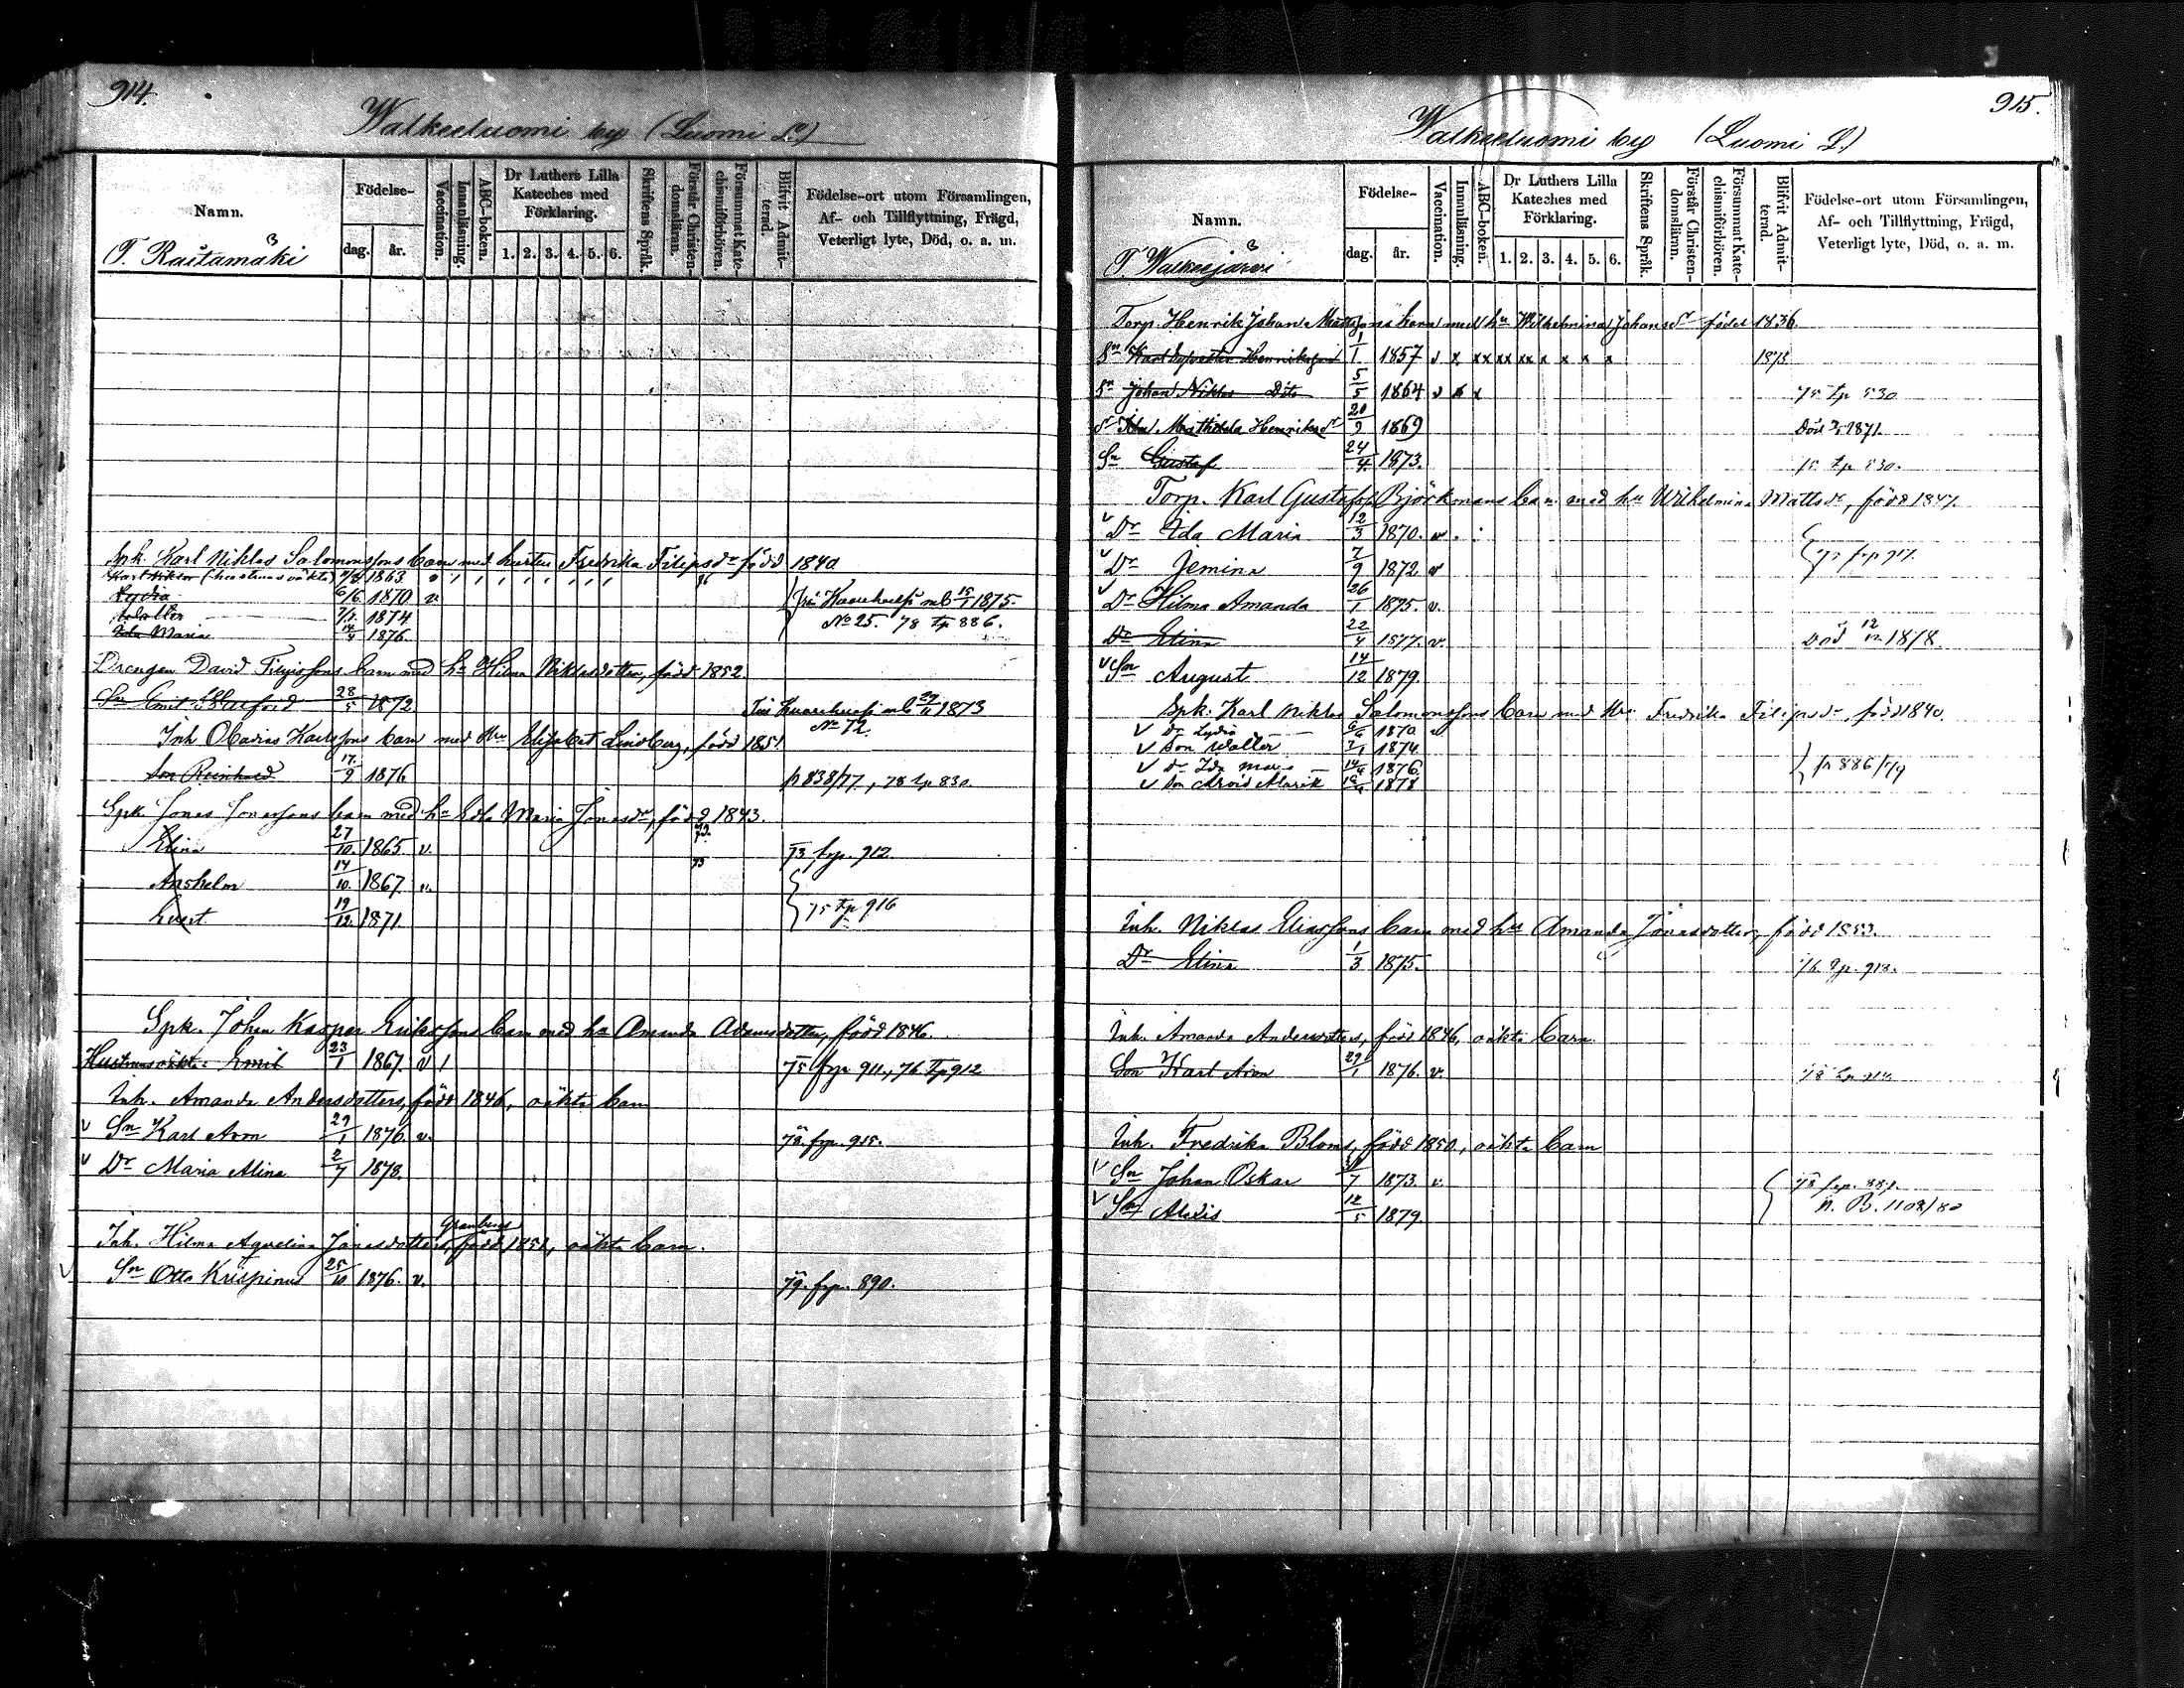 914.
Walkeeluomi by (Luomi Lo)
Namn.
Födelse-
dag.
år.
Vaccination.
Innanläsning.
ABC-boken.
Dr Luthers Lilla Kateches med Förklaring.
1. 2. 3. 4. 5. 6.
Skriftens Språk.
Förstår Christendomsläran.
Försummat Katechismiförhören.
Blifvit Admitterad.
Födelse-ort utom Församlingen, Af- och Tillflyttning, Frägd, Veterligt lyte, Död, o. a. m.
T. Rastamäki
Spk. Karl Niklas Salomonssons barn med hustru Fredrika Filipsdr född 1840
Karl Viktor (hustruns oäkta) 1863
Lydia 6/6 1870 v. från
Walter 7/1 1874 No 25. 78 tp 886.
Ida Maria 14/4 1876
Drengen David Filipssons barn med hu Hilma Niklasdotter, född 1852.
Sn Emil 28/5 1872 1873
No 72.
Inh. Obadias Karlssons barn med Hu Elisabet Lindberg, född 1851
Son Reinhard 17/9 1876 p 838/77, 78 tp 830.
Spk Jonas Jonassons barn med hu Edla Maria Jonasdr, född 1843.
Elina 27/10 1865 v. 73 frp. 912
Anshelm 14/10 1867 v.
Evert 19/12 1871. 75 tp 916
Spk. Johan Kasper Erikssons barn med hu Amanda Adamsdotter, född 1846.
Hustruns oäkta: Emil 23/1 1867. v 1 75 frp 911, 76 tp 912
Inh. Amanda Andersdotters, född 1846, oäkta barn
v Sn Karl Aron 29/1 1876. v. 78. frp. 915.
v Dr Maria Alina 2/7 1878.
Granbergs
Inh. Hilma Aqvelina Jonasdotters, född 1851, oäkta barn.
v Sn Otto Krispinus 25/10 1876. v. 79. frp. 890.
915.
Walkeeluomi by (Luomi L.)
Namn.
Födelse-
dag.
år.
Vaccination.
Innanläsning.
ABC-boken.
Dr Luthers Lilla Kateches med Förklaring.
1. 2. 3. 4. 5. 6.
Skriftens Språk.
Förstår Christendomsläran.
Försummat Katechismiförhören.
Blifvit Admitterad.
Födelse-ort utom Församlingen, Af- och Tillflyttning, Frägd, Veterligt lyte, Död, o. a. m.
T. Walkeejärvi
Torp. Henrik Johan Mattssons barn med hu Wilhelmina Johansdr född 1836.
Sn Karl Sylvester Henriksson 1/1 1857 v x xx xx xx x x x x 1873
Sn Johan Niklas Dito 5/5 1864 v x x 75 tp 530
dr Ida Mathilda Henriksdr 20/9 1869 död 1871.
Sn Gustaf 24/4 1873. 75 tp 530.
Torp. Karl Gustafss. Björkmans barn med hu Wilhelmina Mattsdr, född 1847.
v Dr Ida Maria 12/3 1870. v.
v Dr Jemina 7/9 1872 v frp 917.
v Dr Hilma Amanda 26/1 1875. v.
Dr Elina 22/4 1877. v. Död 12/12 1878.
v Sn August 14/12 1879.
Spk. Karl Niklas Salomonssons barn med Hu Fredrika Filipsdr, född 1840.
v dr Lydia 6/6 1870 v
v Son Walter 7/1 1874
v dr Ida Maria 14/4 1876 fr 886/79
v Son Arvid Alarik 1878
Inh. Niklas Eliassons barn med hu Amanda Jonasdotter, född 1853.
Dr Elina 1/3 1875. 76 tp. 913.
Inh. Amanda Andersdotters, född 1846, oäkta barn.
Son Karl Aron 29/1 1876. v. 78 tp 914
Inh. Fredrika Bloms, född 1850, oäkta barn
v Sn Johan Oskar 1873. v. 78 frp. 887.
v Sn Alexis 12/5 1879. n. B. 1108/80